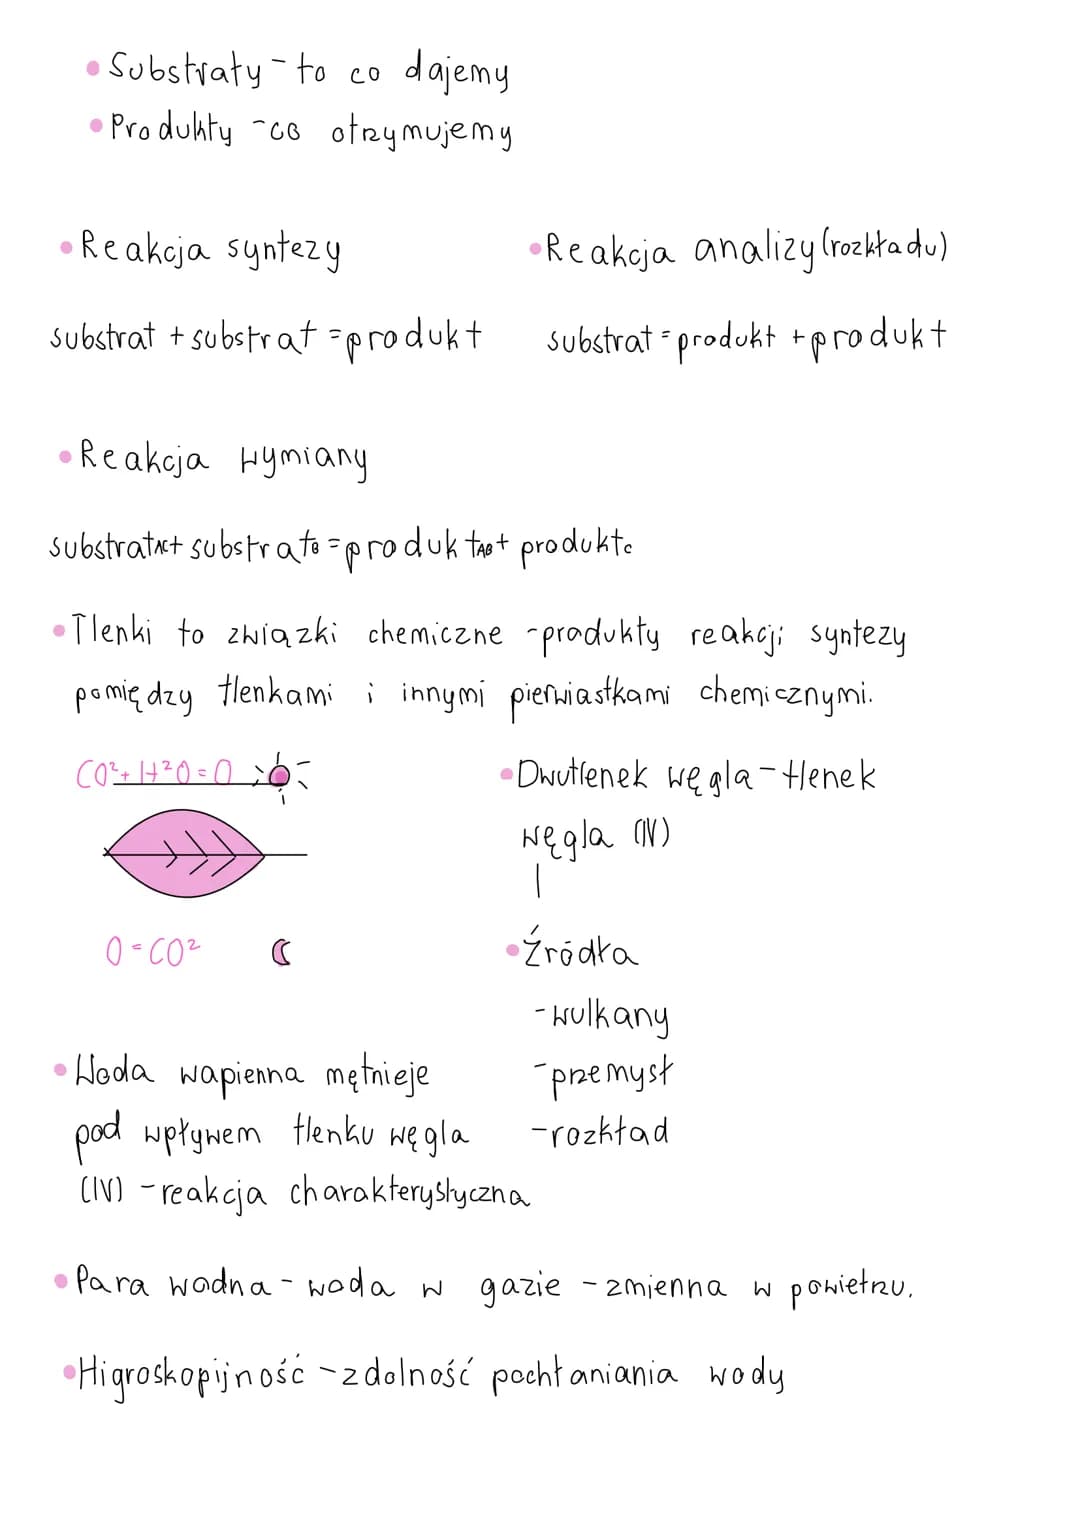 Substraty - to co dajemy
Produkty - co otrzymujemy
Reakcja syntezy
substrat + substrat = produkt
Reakcja analizy (rozkładu)
substrat = produkt + produkt
Reakcja wymiany
substratAC + substratB = produktAB + produktC
Tlenki to związki chemiczne - produkty reakcji syntezy
pomiędzy tlenkami i innymi pierwiastkami chemicznymi.
CO²+H²O=O
O=CO²
Dwutlenek węgla - tlenek
węgla (IV)
Źródła
- wulkany
- przemysł
- rozkład
Woda wapienna mętnieje
pod wpływem tlenku węgla
(IV) - reakcja charakterystyczna
Para wodna - woda w gazie - zmienna w powietrzu.
Higroskopijność - zdolność pochłaniania wody